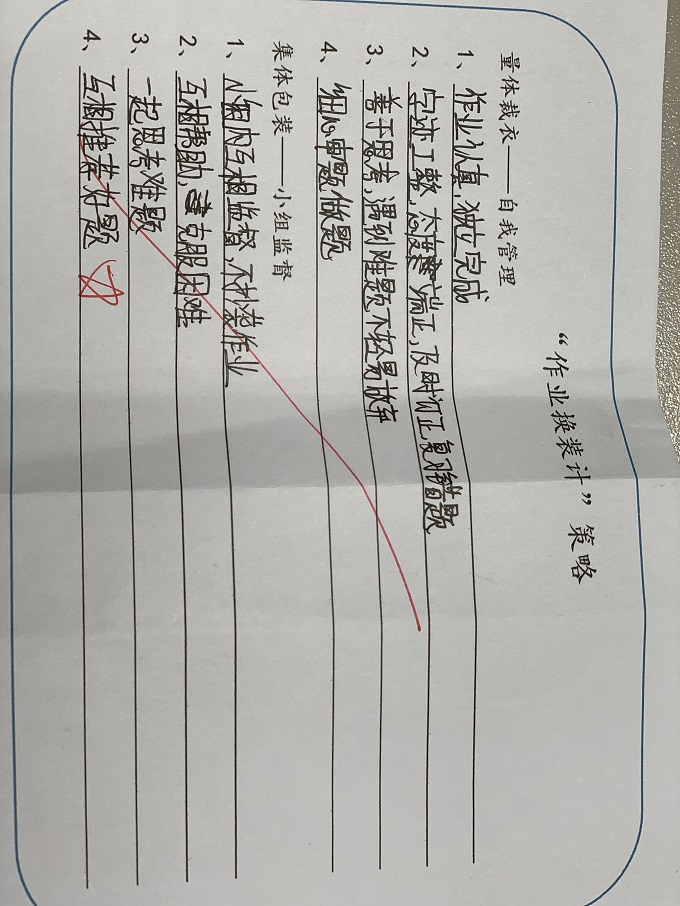 “作业换装计”策略
量体裁衣——自我管理
1、作业认真,独立完成
2、字迹工整,态度端正,及时订正,复习错题
3、善于思考,遇到难题不轻易放弃
4、细心审题做题
集体包装——小组监督
1、小组内互相监督,不抄袭作业
2、互相帮助,克服困难
3、一起思考难题
4、互相推荐好题